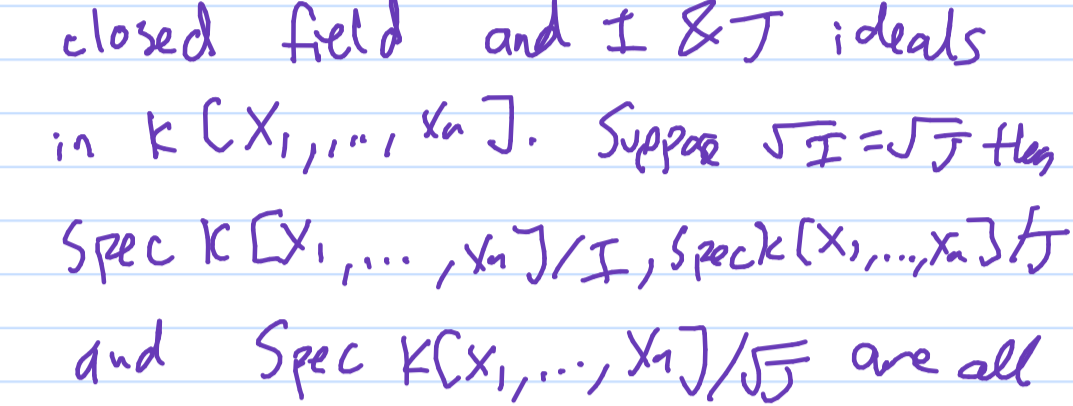 closed field and I & J ideals
in k[X₁,,...,Xₙ]. Suppose √I=√J then
Spec k[X₁,...,Xₙ]/I, Spec k[X₁,...,Xₙ]/J
and Spec k[X₁,...,Xₙ]/√J are all